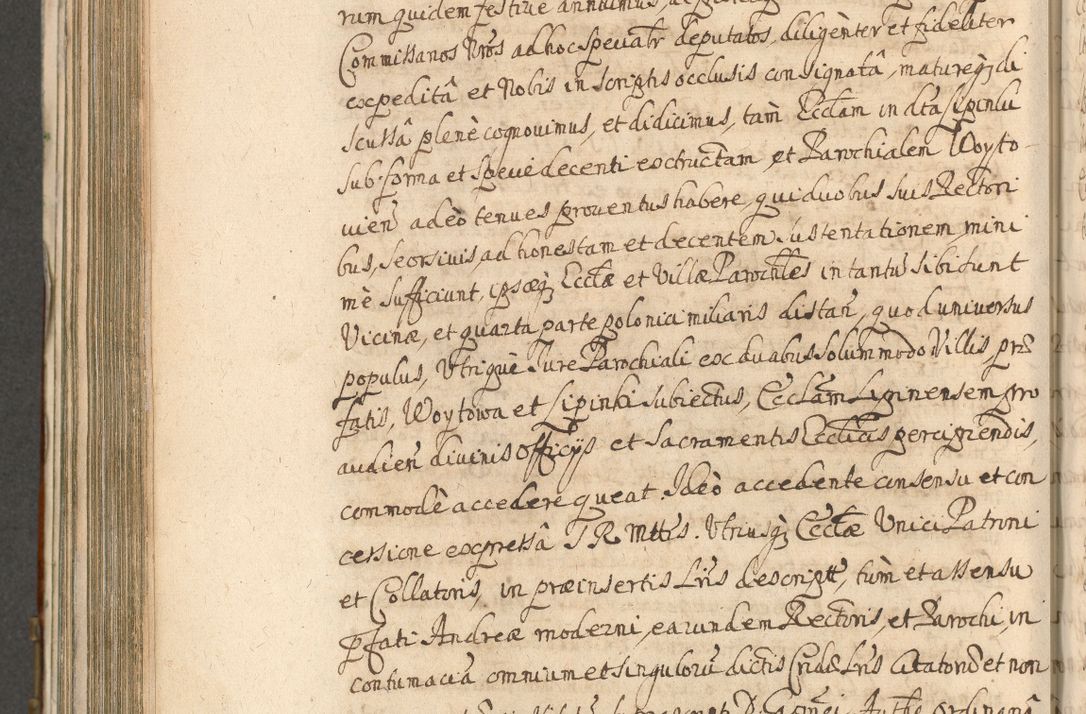 rum quidem festive annuimus,
Commissarios Nros ad hoc specialr deputatos, diligenter et fideliter
expeditâ et Nobis in scriptis occlusis consignatâ, matureq; di
scussâ plenè cognovimus, et didicimus, tam Ecclam in dta Lipinki
sub forma et specie decenti exstructam, et Parochialem Woyto-
vien adeò tenues proventus habere, qui duobus suis Rectori
bus, seorsivis, ad honestam et decentem sustentationem, mini
mè sufficiunt, ipsæq; Ecclæ et Villæ Parochles in tantu sibi sunt
Vicinæ, et quarta parte polonici miliaris distan, quod universus
populus, Utriquè Jure Parochiali ex duabus solummodo Villis, præ
fatis, Woytowa et Lipinki subiectus, Ecclam Lipinensem pro
audien divinis officijs et Sacramentis Ecclicis percipiendis,
commodè accedere queat Ideò accedente consensu et con
cessione expressâ S R Mttis. Utriusq; Ecclæ Unici Patroni
et Collatoris, in præinsertis Lris descript, tùm et assensu
pfati Andreæ moderni, earundem Rectoris, et Parochi, in
contumaciâ omnium et singuloru dictis Cridæ Lris Citatoru et non